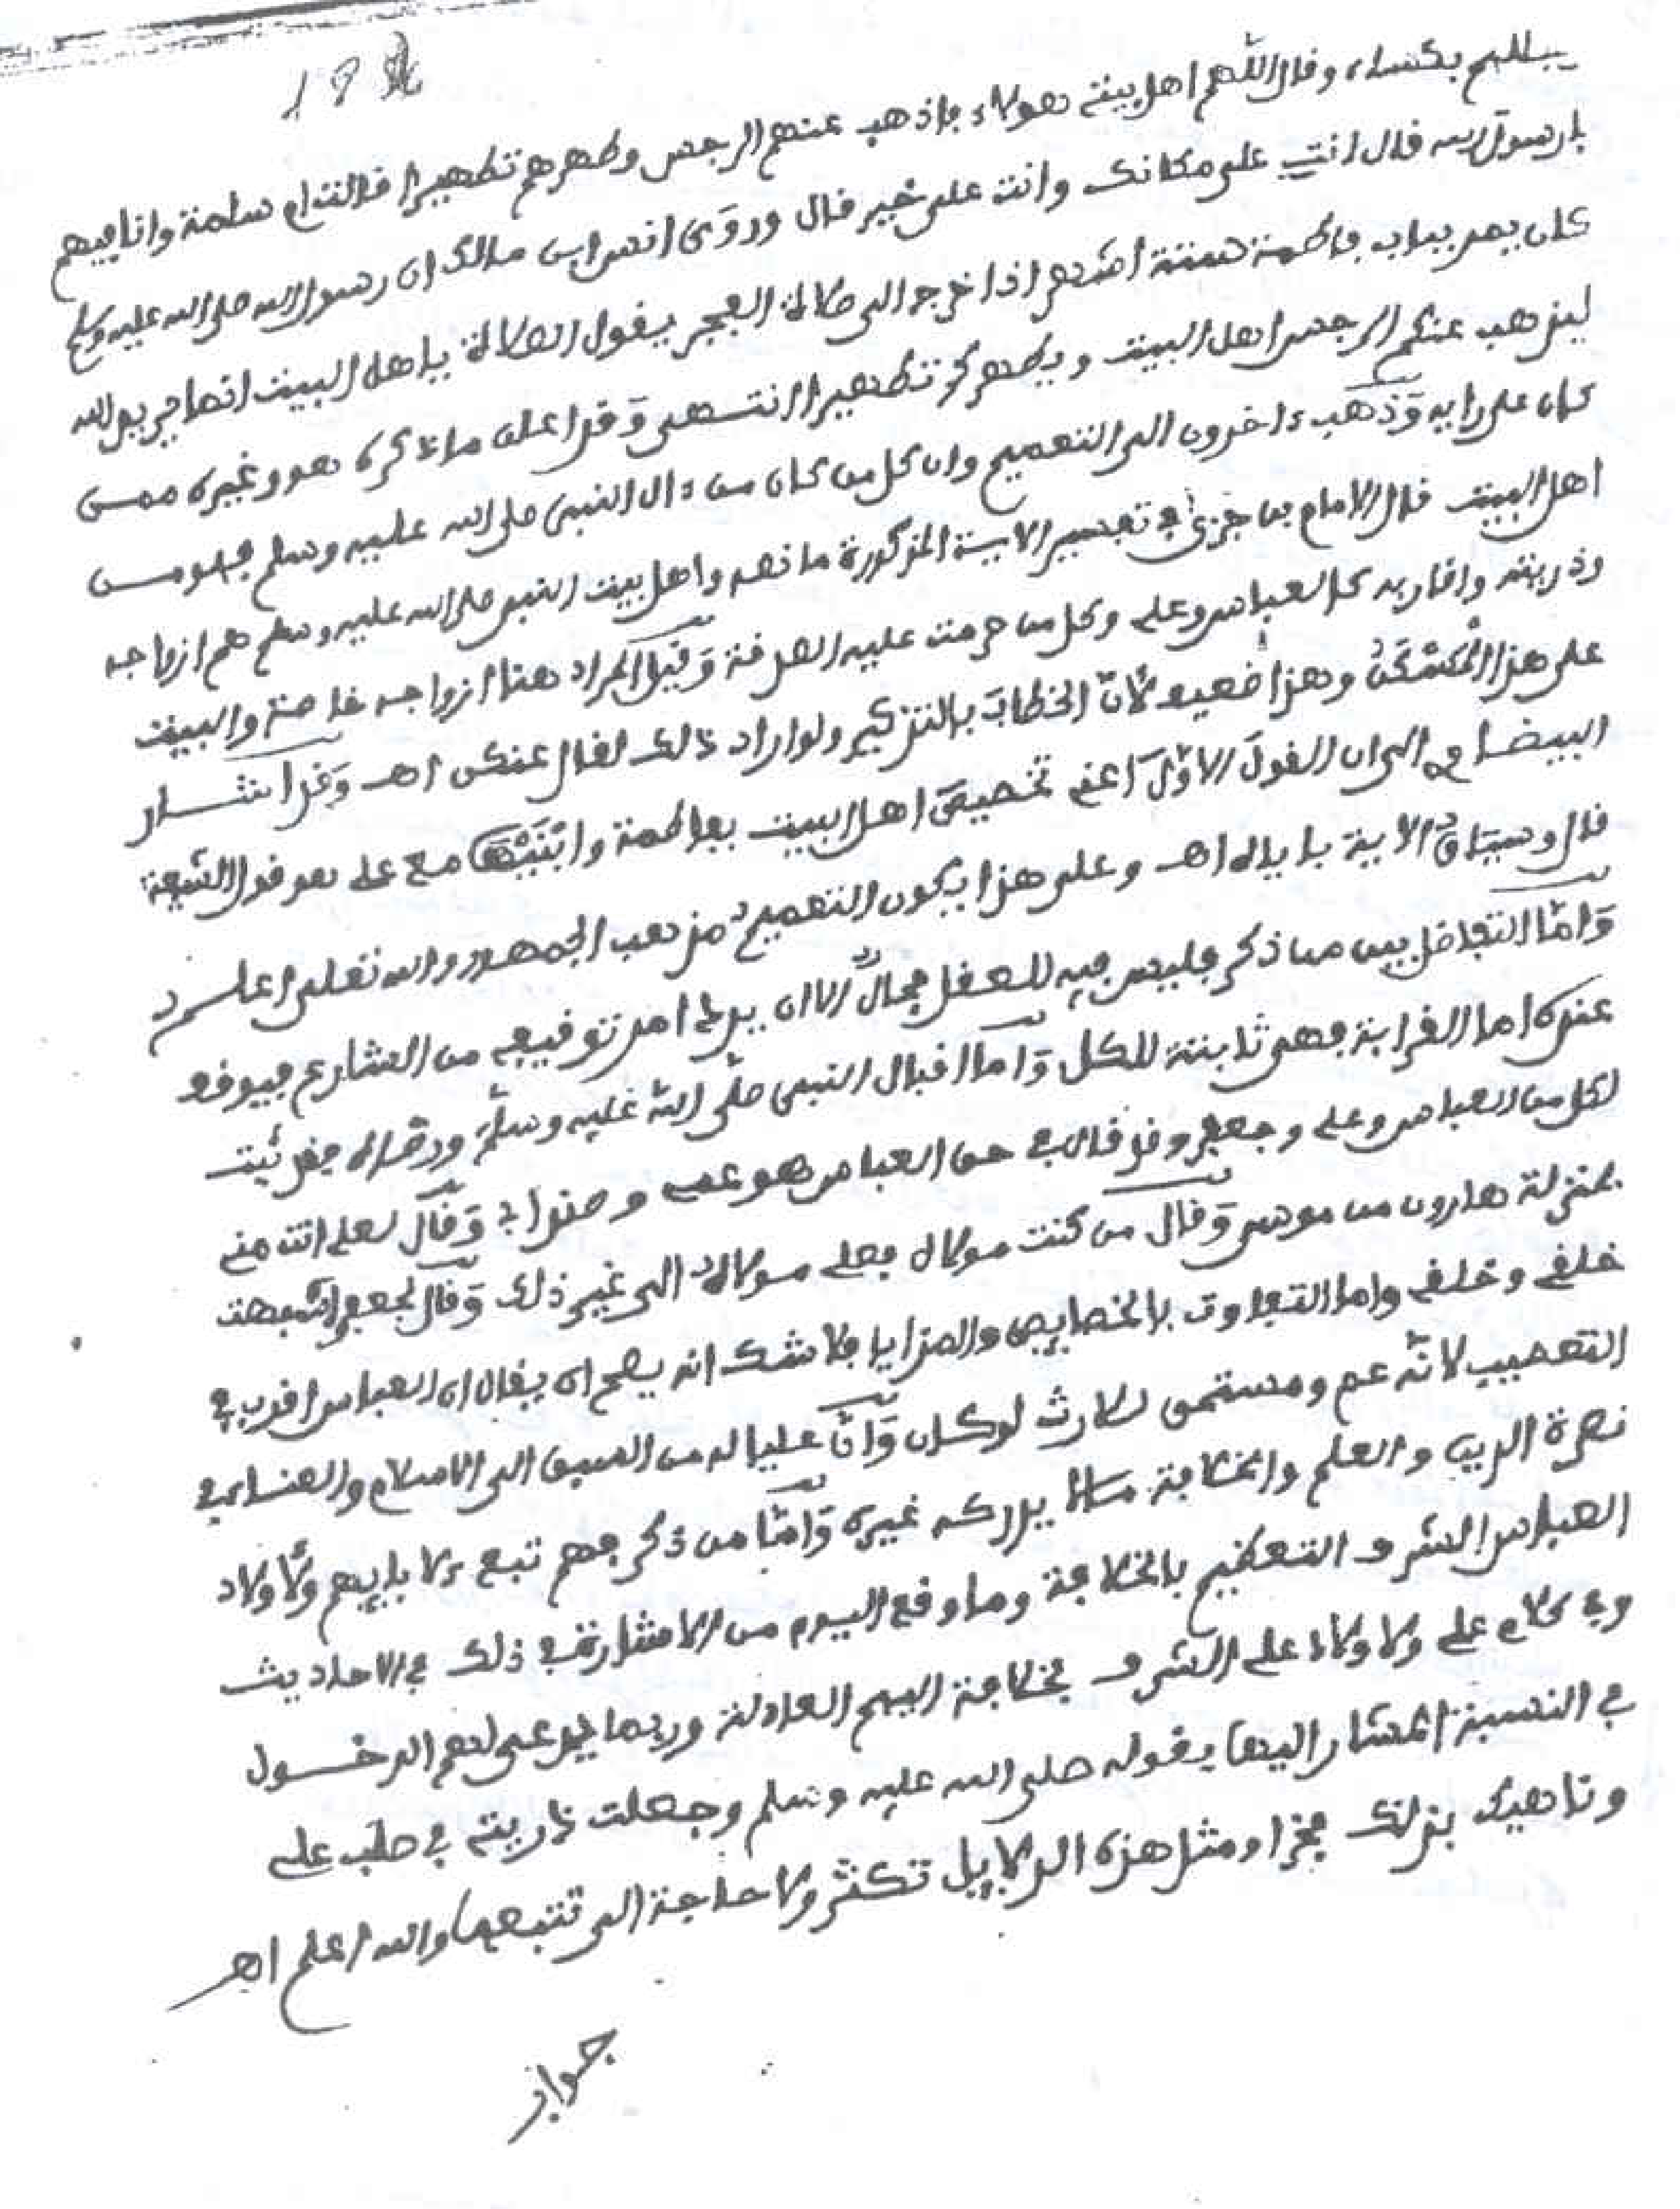 ١٩٨
يجللهم بكساء وقال اللهم اهل بيتي هولاء فاذهب عنهم الرجس وطهرهم تطهيرا فقالت ام سلمة وانا فيهم
يا رسول الله قال انت على مكانك وانت على خير قال وروى انس ابن مالك ان رسول الله صلى الله عليه وسلم
كان يمر بباب فاطمة ستة اشهر اذا خرج الى صلاة الفجر يقول الصلاة يا اهل البيت انما يريد الله
ليذهب عنكم الرجس اهل البيت ويطهركم تطهيرا انتهى وقد اعلن ما ذكره هو وغيره ممن
كان على رايه وذهب ءاخرون الى التعميم وان كل من كان من ءال النبي صلى الله عليه وسلم فهو من
اهل البيت قال الامام بن جزي في تفسير الاية المذكورة ما نصه واهل بيت النبي صلى الله عليه وسلم هم ازواجه
وذريته واقاربه كالعباس وعلي وكل من حرمت عليه الصدقة وقيل المراد هنا ازواجه خاصة والبيت
على هذا المسكن وهذا ضعيف لان الخطاب بالتذكير ولو اراد ذالك لقال عنكن اهـ وقد اشار
البيضاوي الى ان القول الاول اعني تخصيص اهل البيت بفاطمة وابنيها مع علي هو قول الشيعة
قال وسياق الاية يا باه اهـ وعلى هذا يكون التعميم مذهب الجمهور والله تعلى اعلم
واما التفاضل بين من ذكر فليس فيه للعقل مجال الا ان يرد امر توقيفي من الشارع فيوقف
عنده اما القرابة فهي ثابتة للكل واما اقبال النبي صلى الله عليه وسلم ورضاه فقد ثبت
لكل من العباس وعلي وجعفر وقد قال في حق العباس هو عمي وصنو ابي وقال لعلي انت مني
بمنزلة هارون من موسى وقال من كنت مولاه فعلي مولاه الى غير ذلك وقال لجعفر اشبهت
خلقي وخلقي واما التفاوت بالخصايص والمزايا فلا شك انه يصح ان يقال ان العباس اقرب في
التعصيب لانه عم ومستحق للارث لو كان وان عليا له من السبق الى الاسلام والغنا في
نصرة الدين والعلم والخلافة ما لا يدركه غيره واما من ذكر فهم تبع لابايهم ولاولاد
العباس الشرف العظيم بالخلافة وما وقع اليوم من الاشارة في ذلك في الاحاديث
وفي كلام علي ولاولاد علي الشرف بخلافة ابيهم العادلة وربما يدعى لهم الدخول
في النسبة المشار اليها بقوله صلى الله عليه وسلم وجعلت ذريتي في صلب علي
وناهيك بذلك فخرا ومثل هذه الدلايل تكثر ولا حاجة الى تتبعها والله اعلم اهـ
جواز